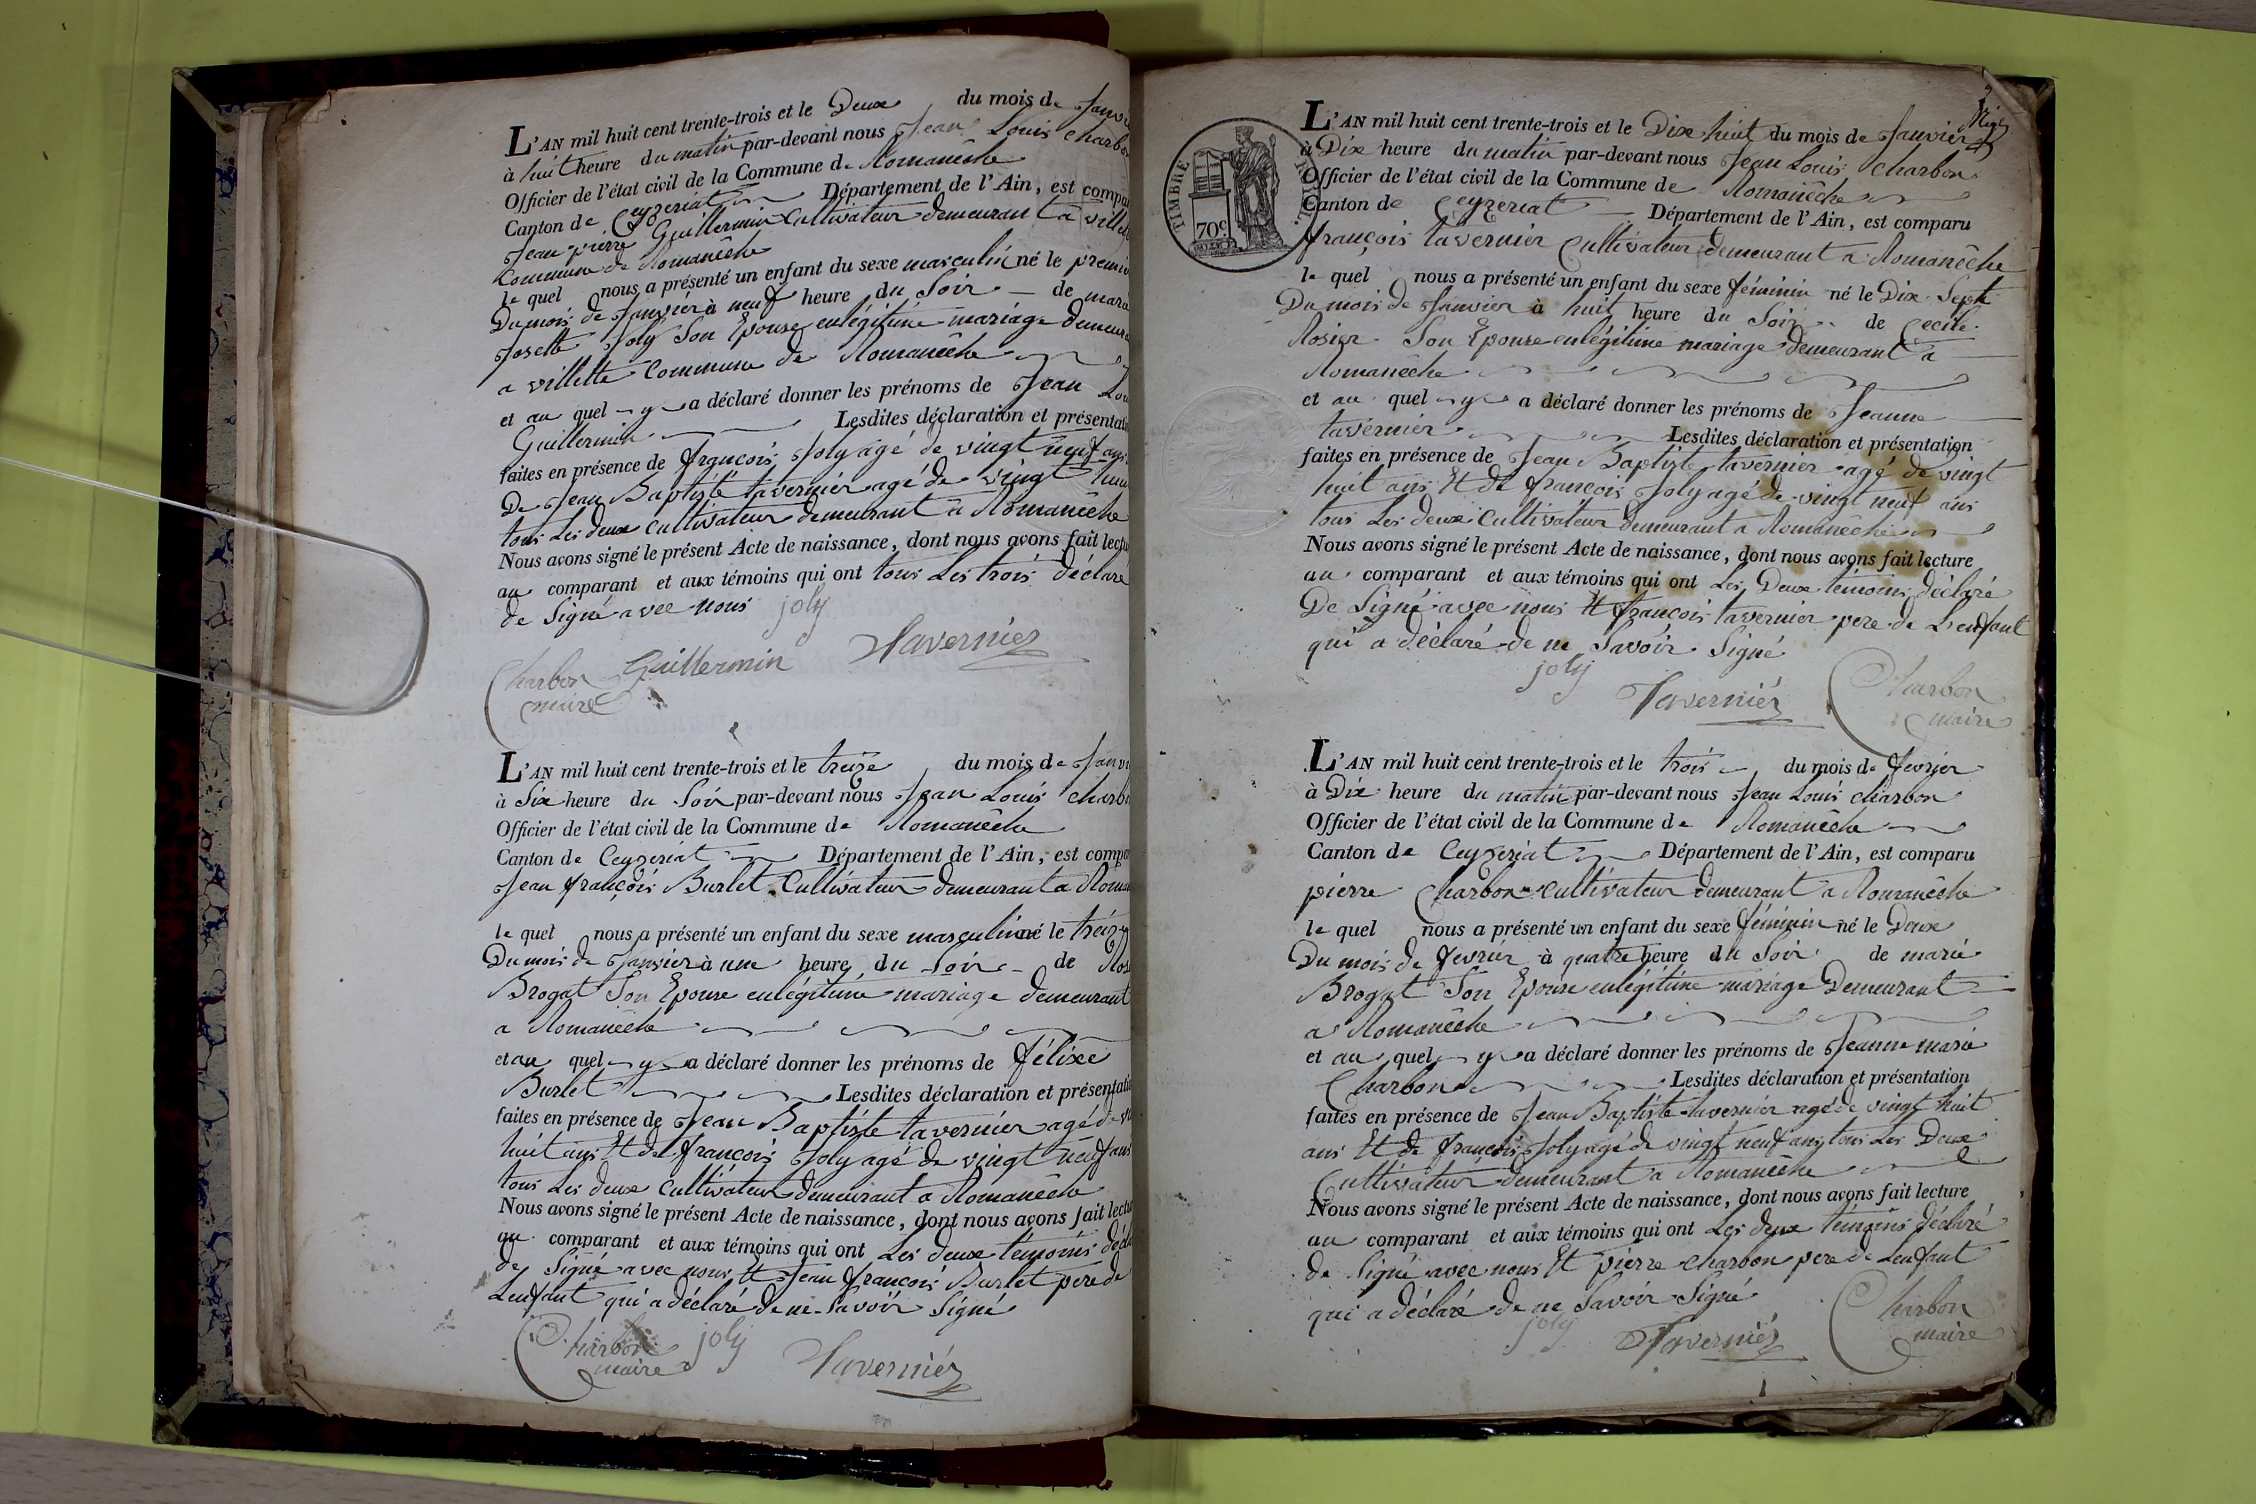 L'AN mil huit cent trente-trois et le Deux du mois de Janvi
à huit heure du matin par-devant nous Jean Louis Charbo
Officier de l'état civil de la Commune de Romanêche
Canton de Ceyzeriat Département de l'Ain, est compa
Jean pierre Guillermin Cultivateur demeurant à villet
Commune de Romanêche
le quel nous a présenté un enfant du sexe masculin né le premi
Du mois de Janvier à neuf heure du Soir de
Josette Joly Son Epouse en légitime mariage demeura
a villette Commune de Romanêche
et au quel y a déclaré donner les prénoms de Jean Lou
Guillermin Lesdites déclaration et présentati
faites en présence de françois Joly agé de vingt neuf ans
De Jean Baptiste tavernier agé de vingt huit
tous Les deux cultivateur demeurant à Romanêche
Nous avons signé le présent Acte de naissance, dont nous avons fait lectu
au comparant et aux témoins qui ont tous Les trois déclaré
de Signé avec nous joly
Charbon Guillermin Tavernier
maire
L'AN mil huit cent trente-trois et le treize du mois de Janvi
à Six heure du Soir par-devant nous Jean Louis Charbo
Officier de l'état civil de la Commune de Romanêche
Canton de Ceyzeriat Département de l'Ain, est compa
Jean françois Burlet Cultivateur demeurant a Roma
le quel nous a présenté un enfant du sexe masculin né le treize
Du mois de Janvier à une heure du Soir de Ros
Brogat Son Epouse en légitime mariage demeurant
a Romanêche
et au quel y a déclaré donner les prénoms de félixce
Burlet Lesdites déclaration et présentati
faites en présence de Jean Baptiste tavernier agé de vi
huit ans Et de françois Joly agé de vingt neuf ans
tous Les deux Cultivateur demeurant a Romanêche
Nous avons signé le présent Acte de naissance, dont nous avons fait lectu
au comparant et aux témoins qui ont Les deux témoins décla
de Signé avec nous Et Jean françois Burlet pere de
Lenfant qui a déclaré de ne Savoir Signé
Charbon joly
maire Tavernier
L'AN mil huit cent trente-trois et le Dix huit du mois de Janvier
à Dix heure du matin par-devant nous Jean Louis Charbon
Officier de l'état civil de la Commune de Romanêche
Canton de Ceyzeriat Département de l'Ain, est comparu
françois tavernier Cultivateur demeurant a Romanêche
le quel nous a présenté un enfant du sexe féminin né le Dix Sept
Du mois de Janvier à huit heure du Soir de Cecile
Rosier Son Epouse en légitime mariage demeurant a
Romanêche
et au quel y a déclaré donner les prénoms de Jeanne
tavernier Lesdites déclaration et présentation
faites en présence de Jean Baptiste tavernier agé de vingt
huit ans Et de françois Joly agé de vingt neuf ans
tous Les deux Cultivateur demeurant a Romanêche
Nous avons signé le présent Acte de naissance, dont nous avons fait lecture
au comparant et aux témoins qui ont Les Deux témoins déclaré
De Signé avec nous Et françois tavernier pere de Lenfant
qui a déclaré de ne Savoir Signé
joly
Tavernier Charbon
maire
TIMBRE
70c
L'AN mil huit cent trente-trois et le trois du mois de fevrier
à Dix heure du matin par-devant nous Jean Louis Charbon
Officier de l'état civil de la Commune de Romanêche
Canton de Ceyzeriat Département de l'Ain, est comparu
pierre Charbon Cultivateur demeurant a Romanêche
le quel nous a présenté un enfant du sexe féminin né le Deux
Du mois de fevrier à quatre heure du Soir de marie
Brogat Son Epouse en légitime mariage Demeurant
a Romanêche
et au quel y a déclaré donner les prénoms de Jeanne marie
Charbon Lesdites déclaration et présentation
faites en présence de Jean Baptiste tavernier agé de vingt huit
ans Et de françois Joly agé de vingt neuf ans tous Les Deux
Cultivateur demeurant a Romanêche
Nous avons signé le présent Acte de naissance, dont nous avons fait lecture
au comparant et aux témoins qui ont Les deux témoins déclaré
de Signé avec nous Et pierre Charbon pere de Lenfant
qui a déclaré de ne Savoir Signé
joly Tavernier Charbon
maire